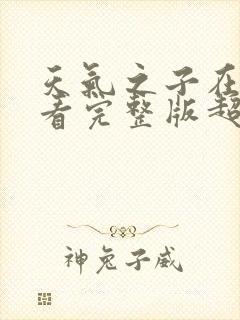 天氣之子在
看完整版超
神兔子威